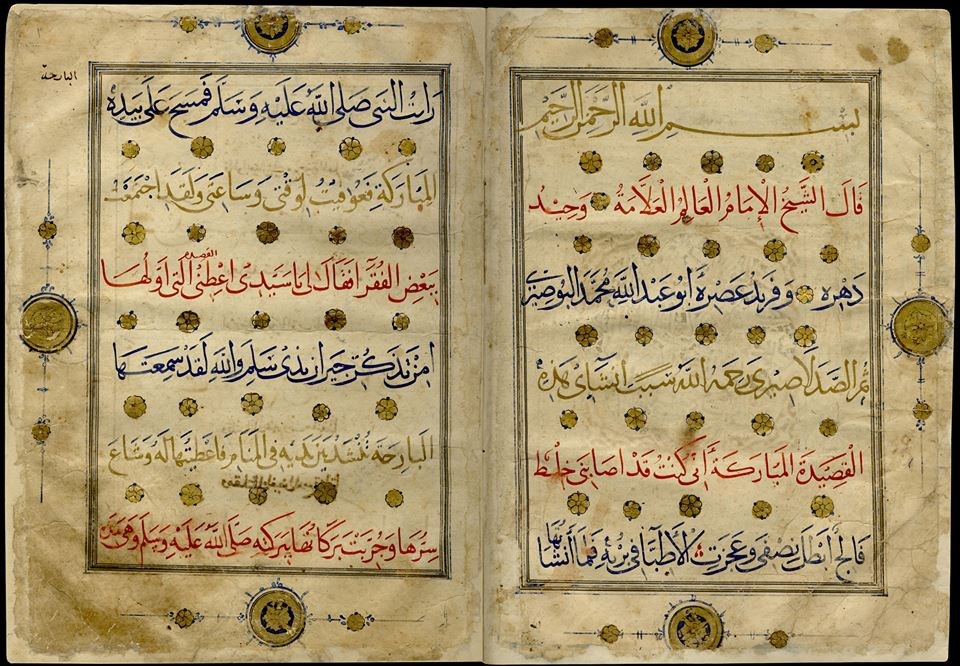 بسم الله الرحمن الرحيم
قال الشيخ الإمام العالم العلامة وحيد
دهره وفريد عصره أبو عبد الله محمد البوصيري
ثم الصدلاصيري رحمه الله سبب انشاي هذه
القصيدة المباركة أني كنت قد اصابني خلط
فالج أبطل نصفي وعجزت الأطبا في برئه فلما أنشاتها
رايت النبي صلى الله عليه وسلم فمسح علي بيده
المباركة فعوفيت لوقتي وساعتي ولقد اجتمعت
القصيدة
ببعض الفقرا فقال لي يا سيدي اعطني التي اولها
امن تذكر جيران بذي سلم والله لقد سمعتها
البارحة تنشد بين يديه في المنام فاعطيتها له وشاع
سرها وجربت بركاتها ببركته صلى الله عليه وسلم وهي هذه
البارحة